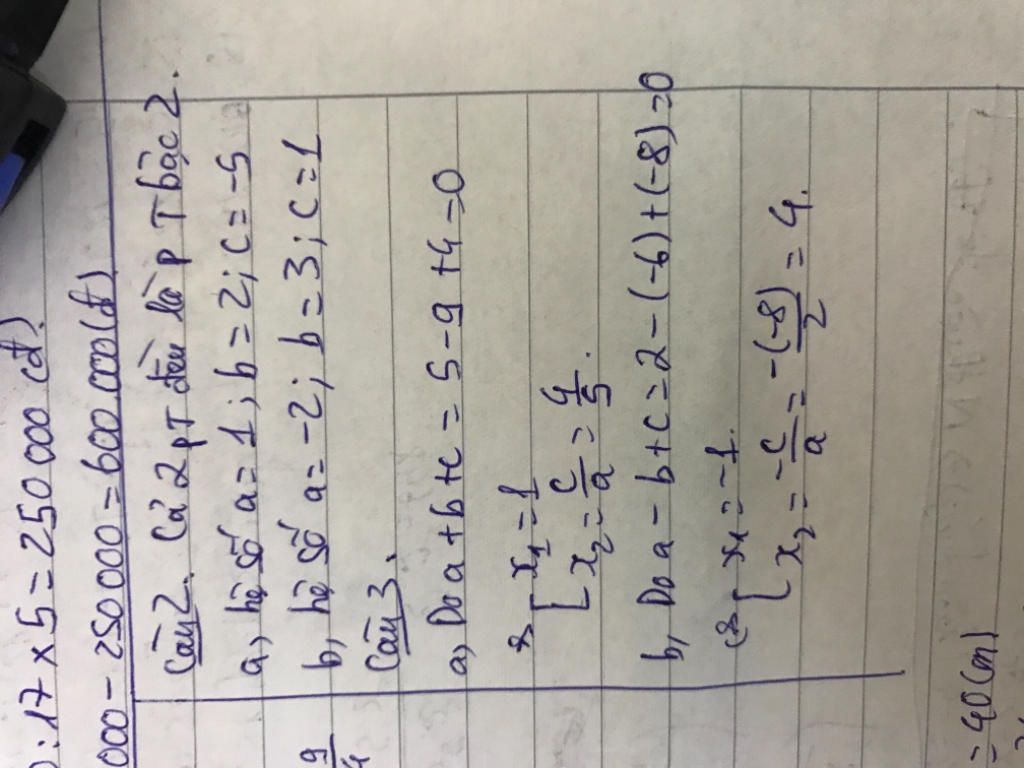 : 17 x 5 = 250 000 (đ)
000 - 250 000 = 600.000 (đ)
Câu 2. Cả 2 PT đều là PT bậc 2.
a, hệ số a = 1 ; b = 2 ; c = -5
b, hệ số a = -2 ; b = 3 ; c = 1
Câu 3.
a, Do a + b + c = 5 - 9 + 4 = 0
[ x₁ = 1
x₂ = c/a = 4/5.
b, Do a - b + c = 2 - (-6) + (-8) = 0
[ x₁ = -1.
x₂ = -c/a = -(-8)/2 = 4.
9/4
= 40 (cm)